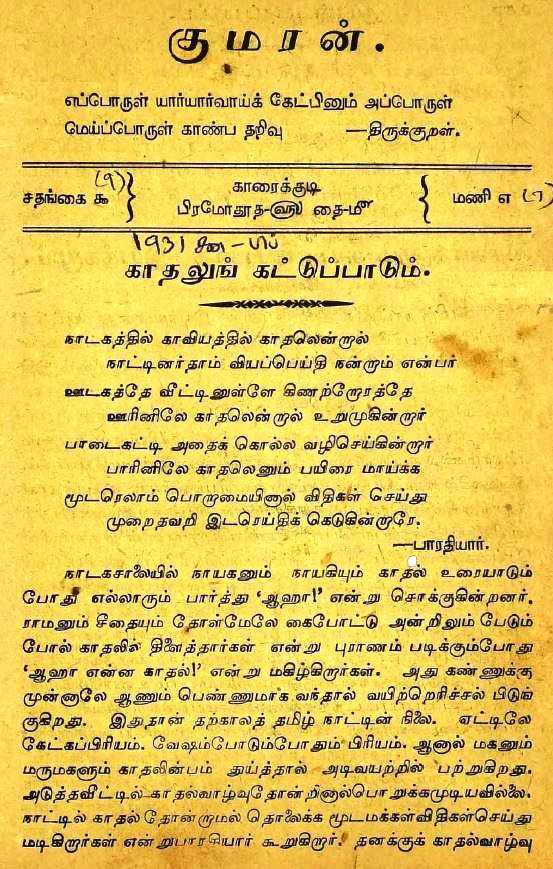 குமரன்.
எப்பொருள் யார்யார்வாய்க் கேட்பினும் அப்பொருள்
மேய்ப்பொருள் காண்ப தறிவு —திருக்குறள்.
(9)
சதங்கை கூ
காரைக்குடி
பிரமோதூத-ஹு தை-மீ
மணி எ (7)
1931
காதலுங் கட்டுப்பாடும்.
நாடகத்தில் காவியத்தில் காதலென்றால்
நாட்டினர்தாம் வியப்பெய்தி நன்றாம் என்பர்
ஊடகத்தே வீட்டினுள்ளே கிணற்றோரத்தே
ஊரினிலே காதலென்றால் உறுமுகின்றார்
பாடைகட்டி அதைக் கொல்ல வழிசெய்கின்றார்
பாரினிலே காதலெனும் பயிரை மாய்க்க
மூடரெலாம் பொறாமையினால் விதிகள் செய்து
முறைதவறி இடரெய்திக் கெடுகின்றாரே.
—பாரதியார்.
நாடகசாலையில் நாயகனும் நாயகியும் காதல் உரையாடும்
போது எல்லாரும் பார்த்து ‘ஆஹா!’ என்று சொக்குகின்றனர்.
ராமனும் சீதையும் தோள்மேலே கைபோட்டு அன்றிலும் பேடும்
போல் காதலில் திளைத்தார்கள் என்று புராணம் படிக்கும்போது
‘ஆஹா என்ன காதல்!’ என்று மகிழ்கிறார்கள். அது கண்ணுக்கு
முன்னாலே ஆணும் பெண்ணுமாக வந்தால் வயிற்றெரிச்சல் பிடுங்
குகிறது. இதுதான் தற்காலத் தமிழ் நாட்டின் நிலை. ஏட்டிலே
கேட்கப்பிரியம். வேஷம்போடும்போதும் பிரியம். ஆனால் மகனும்
மருமகளும் காதலின்பம் துய்த்தால் அடிவயற்றில் பற்றுகிறது.
அடுத்தவீட்டில் காதல்வாழ்வு தோன்றினால்பொறுக்கமுடியவில்லை.
நாட்டில் காதல் தோன்றாமல் தொலைக்க மூடமக்கள்விதிகள்செய்து
மடிகிறார்கள் என்றுபாரதியார் கூறுகிறார். தனக்குக் காதல்வாழ்வு